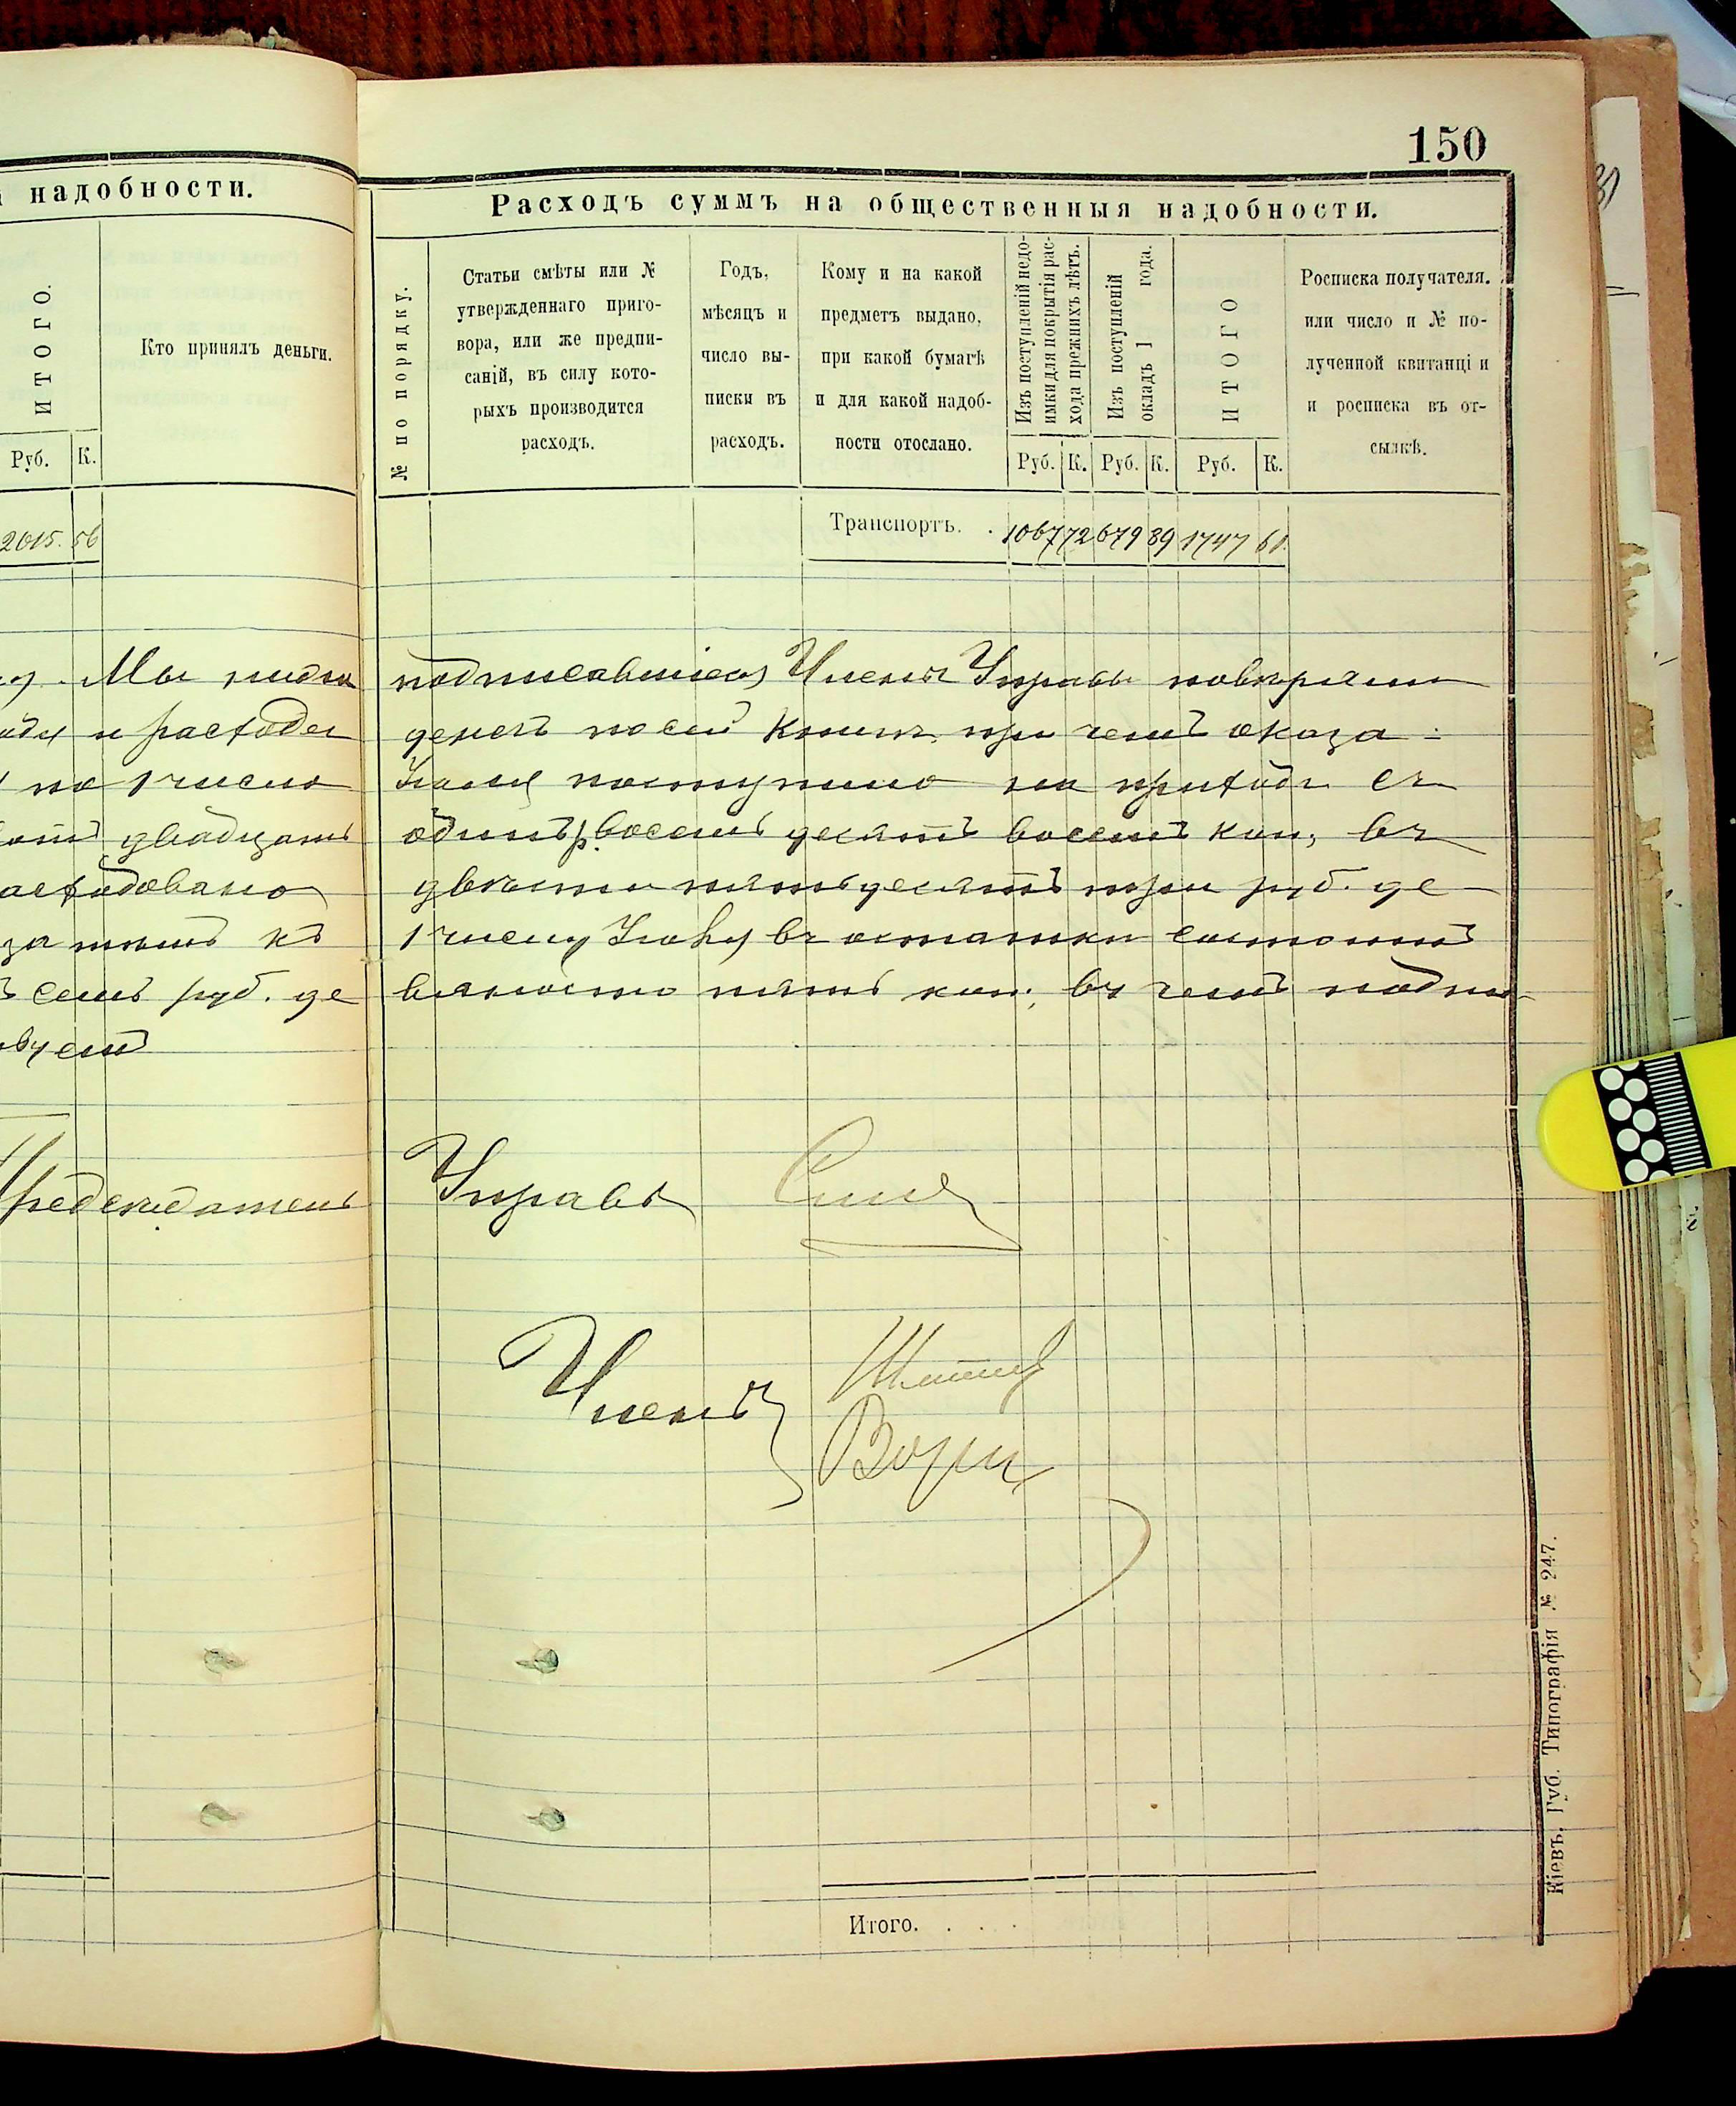 150
надобности.
ИТОГО.
Кто принялъ деньги.
Руб. К.
2015. 56
Мы
и расходы
по 1 число
двадцать
за тѣмъ къ
семь руб. де
Предсѣдатель
Расходъ суммъ на общественныя надобности.
№ по порядку.
Статьи смѣты или №
утвержденнаго приго-
вора, или же предпи-
саній, въ силу кото-
рыхъ производится
расходъ.
Годъ,
мѣсяцъ и
число вы-
писки въ
расходъ.
Кому и на какой
предметъ выдано,
при какой бумагѣ
и для какой надоб-
ности отослано.
Изъ поступленій недо-
имки для покрытія рас-
хода прежнихъ лѣтъ.
Изъ поступленій
окладъ 1 года.
ИТОГО
Росписка получателя.
или число и № по-
лученной квитанціи
и росписка въ от-
сылкѣ.
Руб. К. Руб. К. Руб. К.
Транспортъ. . 1067 72 679 89 1747 61.
подписавшіеся Члены Управы повѣряли
денегъ по сей книгѣ, при чемъ оказа-
поступило на приходъ съ
одинъ р. восемьдесятъ восемь коп., въ
двѣсти пятьдесятъ три руб. де-
1 числу въ остаткѣ состоитъ
пять коп., въ чемъ подпи-
Управы
Члены
Итого. . . .
Кіевъ. Губ. Типографія № 247.